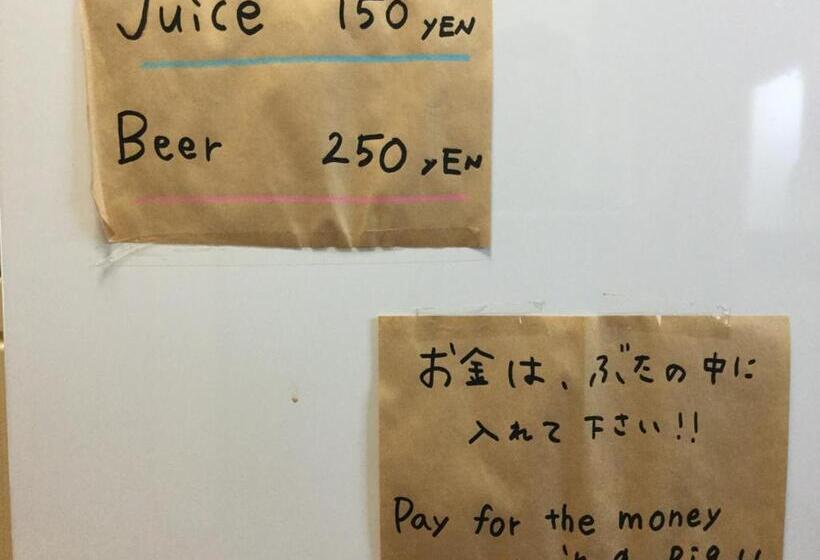 Juice 150 YEN
Beer 250 YEN
お金は、ぶたの中に
入れて下さい!!
Pay for the money
in a Pig!!